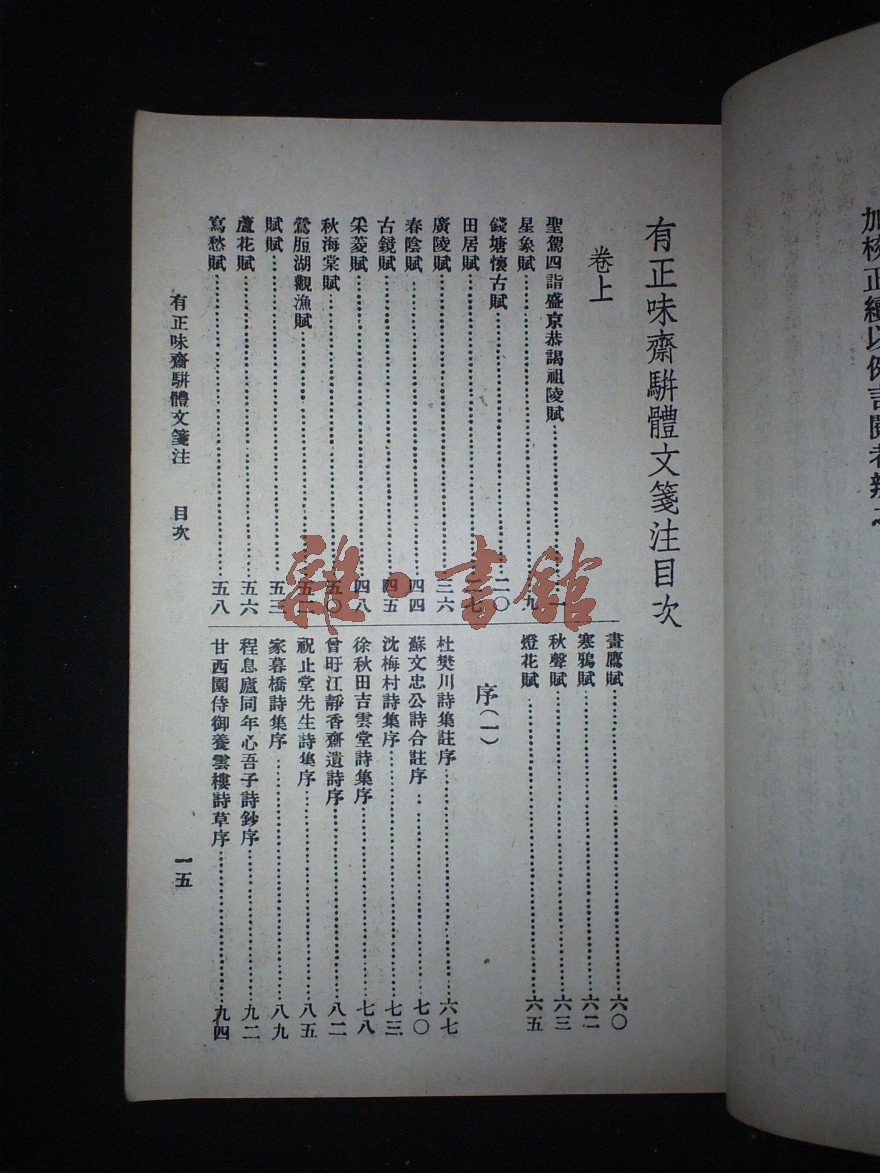 加校正續以例言閱者辨之
有正味齋駢體文箋注目次
卷上
聖駕四詣盛京恭謁祖陵賦……一
星象賦……九
錢塘懷古賦……二〇
田居賦……二七
廣陵賦……三六
春陰賦……四四
古鏡賦……四五
采菱賦……四八
秋海棠賦……五〇
鶯脰湖觀漁賦……五二
賦賦……五三
蘆花賦……五六
寫愁賦……五八
畫鷹賦……六〇
寒鴉賦……六二
秋聲賦……六三
燈花賦……六五
序(一)
杜樊川詩集註序……六七
蘇文忠公詩合註序……七〇
沈梅村詩集序……七三
徐秋田吉雲堂詩集序……七八
曾旴江靜香齋遺詩序……八二
祝止堂先生詩集序……八五
家暮橋詩集序……八九
程息廬同年心吾子詩鈔序……九二
甘西園侍御養雲樓詩草序……九四
有正味齋駢體文箋注 目次
一五
雜·書館